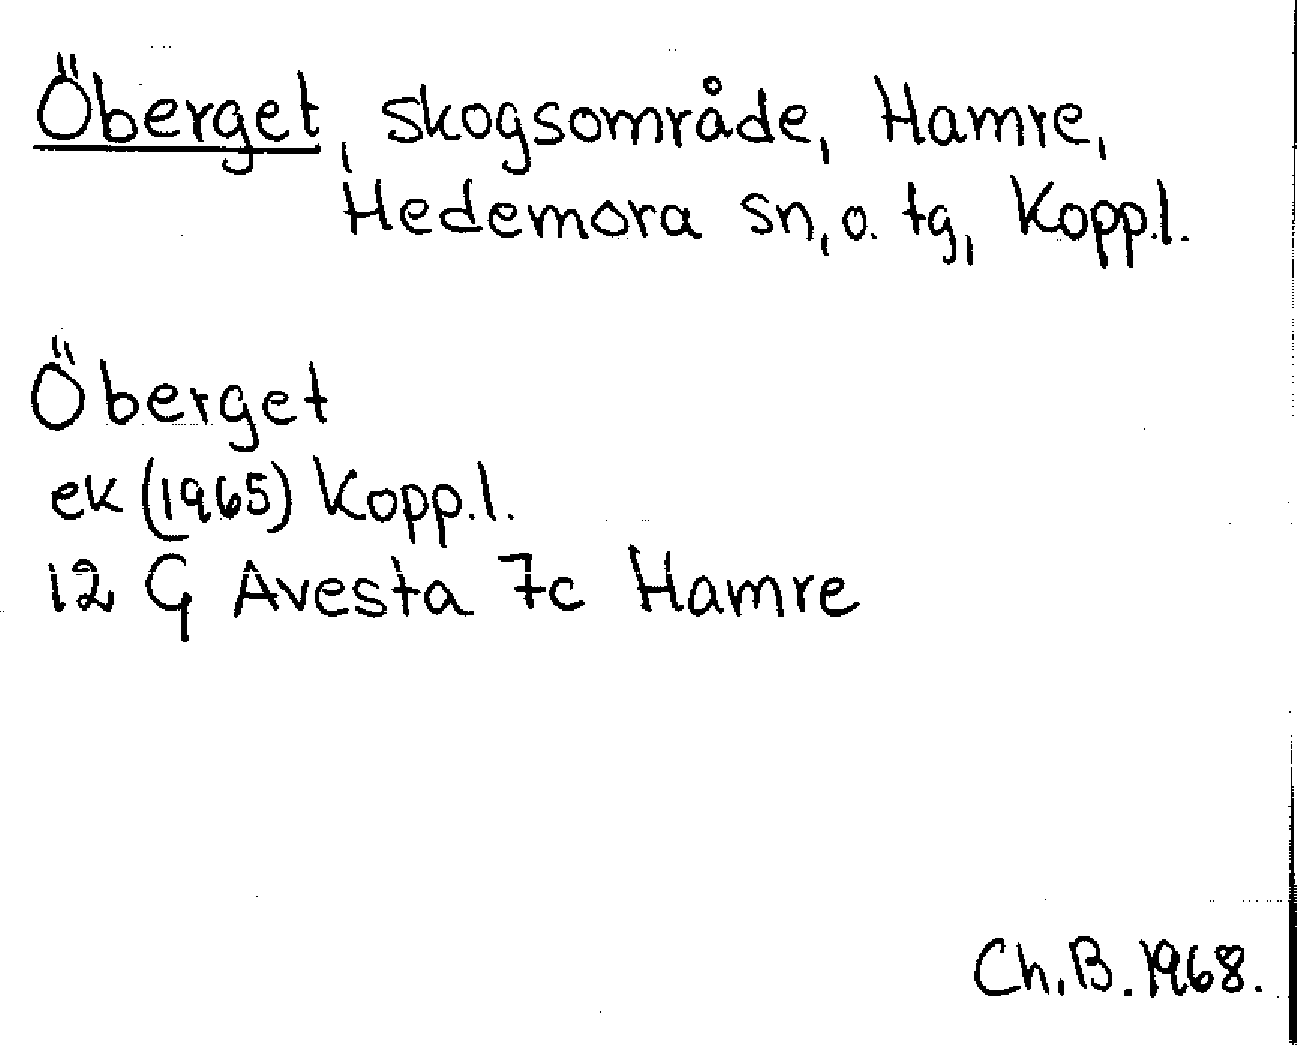 Öberget, skogsområde, Hamre,
Hedemora sn, o. tg, Kopp.l.
Öberget
ek (1965) Kopp.l.
12 G Avesta 7c Hamre
Ch. B. 1968.